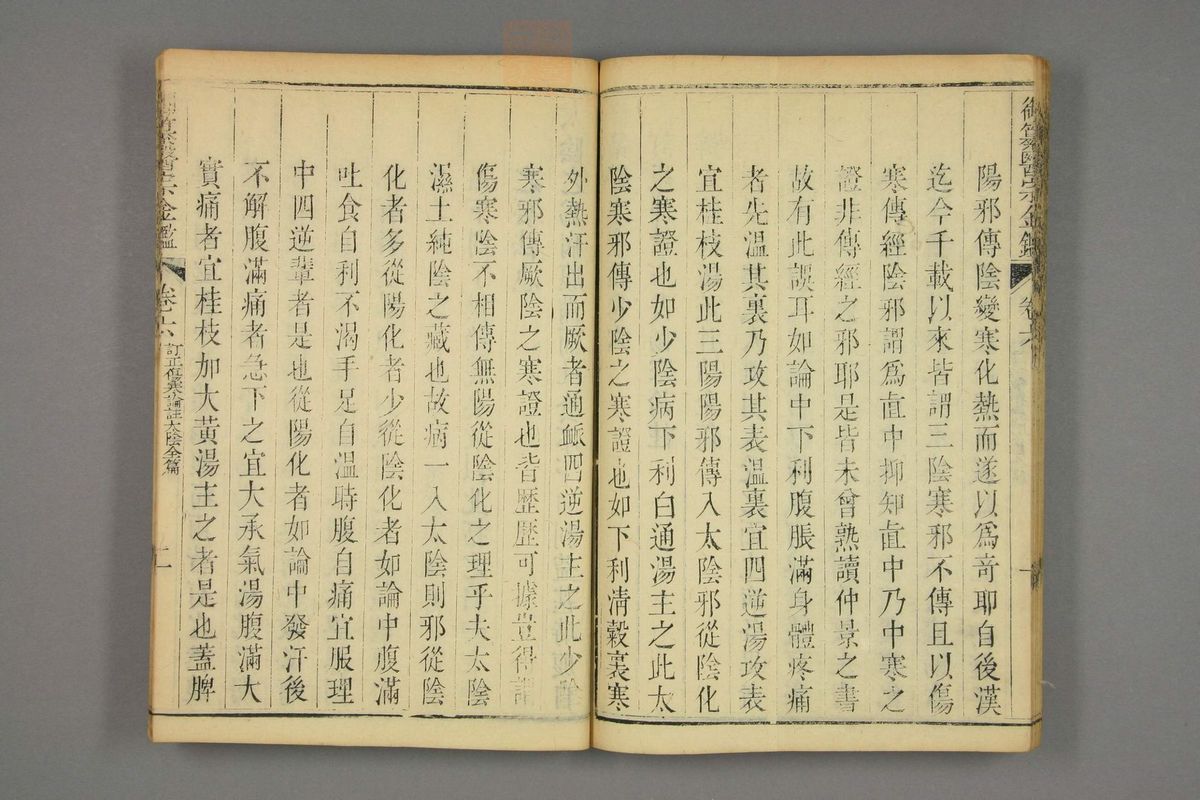 御纂醫宗金鑑 卷六
陽邪傳陰變寒化熱而遂以爲奇耶自後漢
迄今千載以來皆謂三陰寒邪不傳且以傷
寒傳經陰邪謂爲直中抑知直中乃中寒之
證非傳經之邪耶是皆未曾熟讀仲景之書
故有此誤耳如論中下利腹脹滿身體疼痛
者先溫其裏乃攻其表溫裏宜四逆湯攻表
宜桂枝湯此三陽陽邪傳入太陰邪從陰化
之寒證也如少陰病下利白通湯主之此太
陰寒邪傳少陰之寒證也如下利淸穀裏寒
外熱汗出而厥者通脈四逆湯主之此少陰
寒邪傳厥陰之寒證也皆歷歷可據豈得謂
傷寒陰不相傳無陽從陰化之理乎夫太陰
濕土純陰之藏也故病一入太陰則邪從陰
化者多從陽化者少從陰化者如論中腹滿
吐食自利不渴手足自溫時腹自痛宜服理
中四逆輩者是也從陽化者如論中發汗後
不解腹滿痛者急下之宜大承氣湯腹滿大
實痛者宜桂枝加大黃湯主之者是也蓋脾
御纂醫宗金鑑 卷六 訂正傷寒論註太陰全篇 一